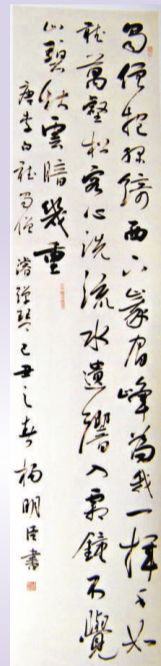 蜀僧抱綠綺西下峨眉峰為我一揮手如
聽萬壑松客心洗流水遺響入霜鐘不覺
山暮秋雲暗幾重
唐李白聽蜀僧濬彈琴己丑之春楊明臣書